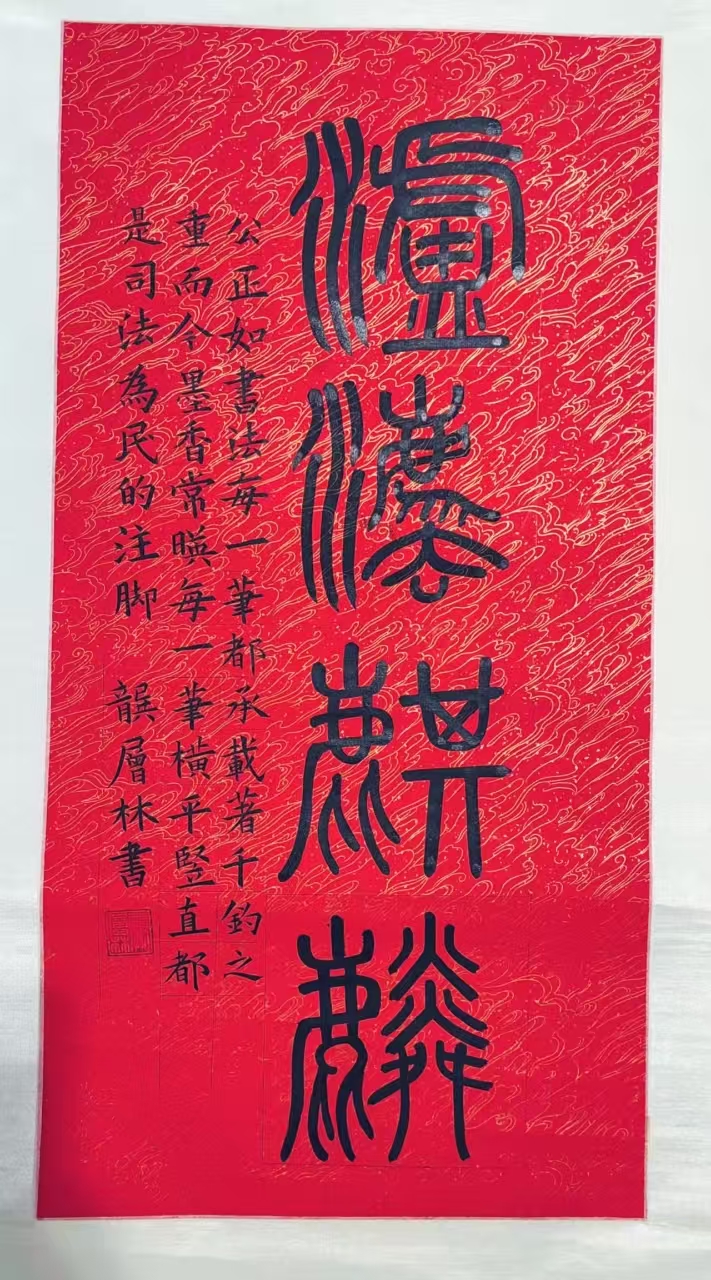 瀘灋麒麟
公正如書法每一筆都承載著千鈞之
重而今墨香常暎每一筆橫平豎直都
是司法為民的注脚 龔層林書